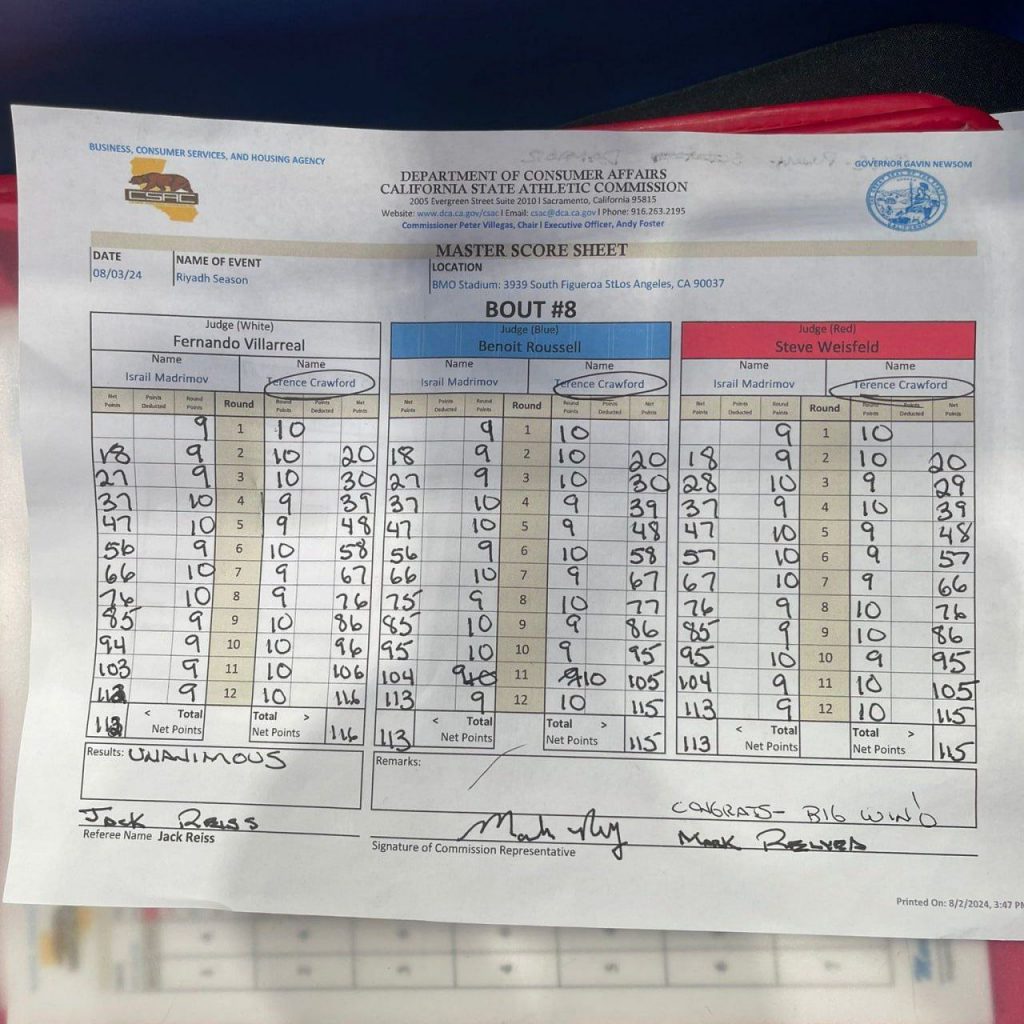 BUSINESS, CONSUMER SERVICES, AND HOUSING AGENCY
GOVERNOR GAVIN NEWSOM
CSAC
DEPARTMENT OF CONSUMER AFFAIRS
CALIFORNIA STATE ATHLETIC COMMISSION
2005 Evergreen Street Suite 2010 I Sacramento, California 95815
Website: www.dca.ca.gov/csac I Email: csac@dca.ca.gov I Phone: 916.263.2195
Commissioner Peter Villegas, Chair I Executive Officer, Andy Foster
MASTER SCORE SHEET
DATE NAME OF EVENT LOCATION
08/03/24 Riyadh Season BMO Stadium: 3939 South Figueroa StLos Angeles, CA 90037
BOUT #8
Judge (White) Judge (Blue) Judge (Red)
Fernando Villarreal Benoit Roussell Steve Weisfeld
Name Name Name Name Name Name
Israil Madrimov Terence Crawford Israil Madrimov Terence Crawford Israil Madrimov Terence Crawford
Net Points Points Deducted Round Points Round Round Points Points Deducted Net Points Net Points Points Deducted Round Points Round Round Points Points Deducted Net Points Net Points Points Deducted Round Points Round Round Points Points Deducted Net Points
9 1 10 9 1 10 9 1 10
18 9 2 10 20 18 9 2 10 20 18 9 2 10 20
27 9 3 10 30 27 9 3 10 30 28 10 3 9 29
37 10 4 9 39 37 10 4 9 39 37 9 4 10 39
47 10 5 9 48 47 10 5 9 48 47 10 5 9 48
56 9 6 10 58 56 9 6 10 58 57 10 6 9 57
66 10 7 9 67 66 10 7 9 67 67 10 7 9 66
76 10 8 9 76 75 9 8 10 77 76 9 8 10 76
85 9 9 10 86 85 10 9 9 86 85 9 9 10 86
94 9 10 10 96 95 10 10 9 95 95 10 10 9 95
103 9 11 10 106 104 9 11 10 105 104 9 11 10 105
112 9 12 10 116 113 9 12 10 115 113 9 12 10 115
112 < Total Net Points Total > Net Points 116 113 < Total Net Points Total > Net Points 115 113 < Total Net Points Total > Net Points 115
Results: UNANIMOUS Remarks:
CONGRATS- BIG WIN!
Jack Reiss
Referee Name Jack Reiss
Signature of Commission Representative
Mark Relyea
Printed On: 8/2/2024, 3:47 PM